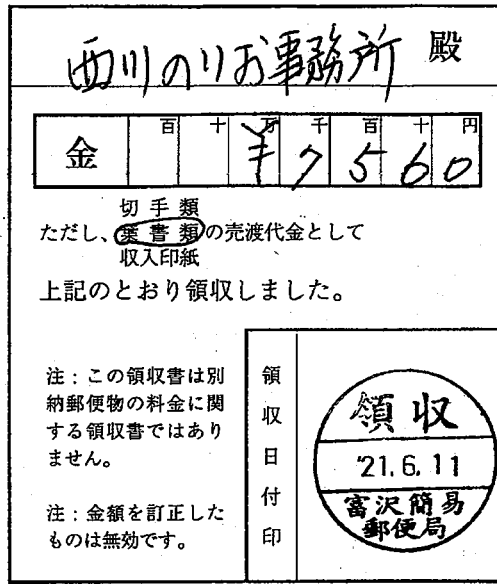 西川のりお事務所 殿
百 十 万 千 百 十 円
金 ¥7560
切手類
ただし、葉書類の売渡代金として
収入印紙
上記のとおり領収しました。
注：この領収書は別
納郵便物の料金に関
する領収書ではあり
ません。
注：金額を訂正した
ものは無効です。
領収日付印
領収
'21.6.11
富沢簡易
郵便局